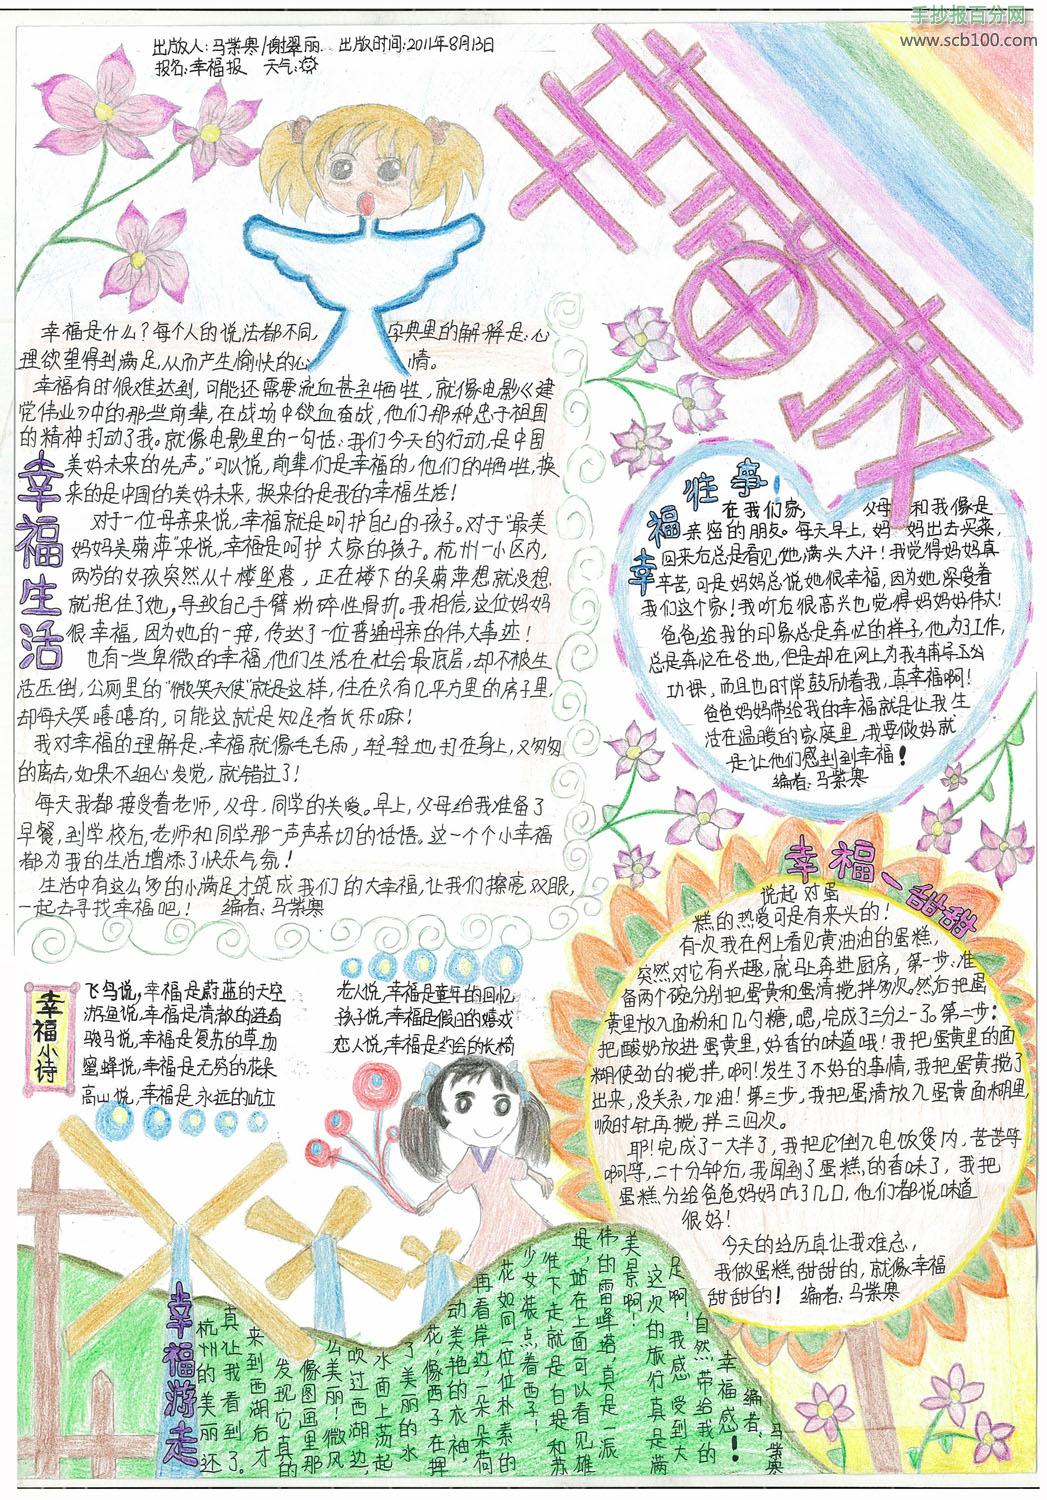 手抄报百分网
www.scb100.com
出版人:马紫寒/谢翠丽 出版时间:2011年8月13日
报名:幸福报 天气:
幸福报
幸福是什么?每个人的说法都不同,字典里的解释是:心
理欲望得到满足,从而产生愉快的心情。
幸福有时很难达到,可能还需要流血甚至牺牲,就像电影《建
党伟业》中的那些前辈,在战场中欲血奋战,他们那种忠于祖国
的精神打动了我。就像电影里的一句话:我们今天的行动,是中国
美好未来的先声。"可以说,前辈们是幸福的,他们的牺牲,换
来的是中国的美好未来,换来的是我的幸福生活!
幸福生活
对于一位母亲来说,幸福就是呵护自己的孩子。对于"最美
妈妈吴菊萍"来说,幸福是呵护大家的孩子。杭州一小区内,
两岁的女孩突然从十楼坠落,正在楼下的吴菊萍想就没想
就抱住了她,导致自己手臂粉碎性骨折。我相信,这位妈妈
很幸福,因为她的一接,传达了一位普通母亲的伟大事迹!
也有一些卑微的幸福,他们生活在社会最底层,却不被生
活压倒,公厕里的"微笑天使"就是这样,住在只有几平方里的房子里,
却每天笑嘻嘻的,可能这就是知足者长乐嘛!
我对幸福的理解是:幸福就像毛毛雨,轻轻地打在身上,又匆匆
的离去,如果不细心发觉,就错过了!
每天我都接受着老师,父母,同学的关爱。早上,父母给我准备了
早餐,到学校后,老师和同学那一声声亲切的话语。这一个个小幸福
都为我的生活增添了快乐气氛!
生活中有这么多的小满足才筑成我们的大幸福,让我们擦亮双眼,
一起去寻找幸福吧! 编者:马紫寒
幸福往事!
在我们家,父母和我像是
亲密的朋友。每天早上,妈妈出去买菜,
回来后总是看见她满头大汗!我觉得妈妈真
辛苦,可是妈妈总说她很幸福,因为她深爱着
我们这个家!我听后很高兴也觉得妈妈好伟大!
爸爸给我的印象总是奔忙的样子,他为了工作,
总是奔忙在各地,但是却在网上为我辅导
功课,而且也时常鼓励着我,真幸福啊!
爸爸妈妈带给我的幸福就是让我生
活在温暖的家庭里,我要做好就
是让他们感到到幸福!
编者:马紫寒
幸福一甜甜
说起对蛋
糕的热爱可是有来头的!
有次我在网上看见黄油油的蛋糕,
突然对它有兴趣,就马上奔进厨房,第一步:准
备两个碗分别把蛋黄和蛋清搅拌多次,然后把蛋
黄里放入面粉和几勺糖,嗯,完成了三分之一了。第二步:
把酸奶放进蛋黄里,好香的味道哦!我把蛋黄里的面
糊使劲的搅拌,啊!发生了不好的事情,我把蛋黄搅了
出来,没关系,加油!第三步,我把蛋清放入蛋黄面糊里,
顺时针再搅拌三四次。
耶!完成了一大半了,我把它倒入电饭煲内,苦苦等
啊等,二十分钟后,我闻到了蛋糕的香味了,我把
蛋糕分给爸爸妈妈吃了几口,他们都说味道
很好!
今天的经历真让我难忘,
我做蛋糕,甜甜的,就像幸福
甜甜的! 编者:马紫寒
幸福小诗
飞鸟说,幸福是蔚蓝的天空
游鱼说,幸福是清澈的
骏马说,幸福是复苏的草场
蜜蜂说,幸福是无穷的花朵
高山说,幸福是永远的屹立
老人说,幸福是童年的回忆
孩子说,幸福是假日的嬉戏
恋人说,幸福是约会的长椅
幸福游走
杭州的美丽还
真让我看到了。
来到西湖后才
发现它真的
像图画里那
么美丽!微风
吹过西湖边,
水面上荡起
了美丽的水
花,像西子在挥
动美艳的衣袖,
再看岸边,一朵朵荷
花如同一位位朴素的
少女装点着西子!
往下走就是白堤和苏
堤,站在上面可以看见雄
伟的雷峰塔,真是一派
美景啊!
这次的旅行真是满
足啊!我感受到大
自然带给我的
幸福感!
编者:马紫寒